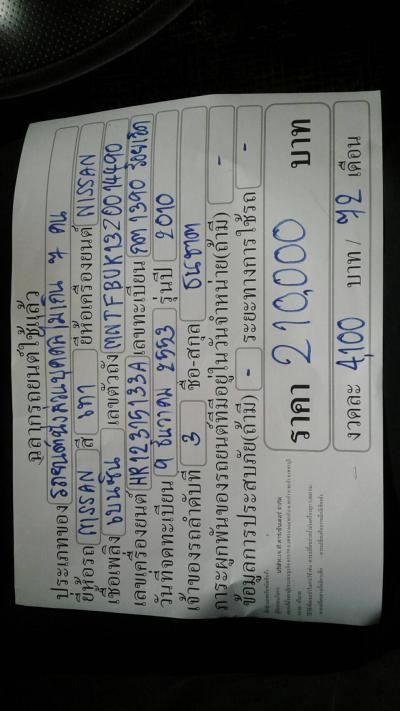 ฉลากรถยนต์ใช้แล้ว
ประเภทของ รถยนต์นั่งส่วนบุคคลไม่เกิน 7 คน
ยี่ห้อรถ NISSAN สี เทา ยี่ห้อเครื่องยนต์ NISSAN
เชื้อเพลิง เบนซิน เลขตัวถัง MNTFBUK13Z0014490
เลขเครื่องยนต์ HR12315133A เลขทะเบียน กต 1390 ร้อยเอ็ด
วันที่จดทะเบียน 9 ธันวาคม 2553 รุ่นปี 2010
เจ้าของรถลำดับที่ 3 ชื่อ-สกุล ธนชาต
ภาระผูกพันของรถยนต์ที่มีอยู่ในวันจำหน่าย(ถ้ามี) -
ข้อมูลการประสบภัย(ถ้ามี) - ระยะทางการใช้รถ -
ราคา 210,000 บาท
งวดละ 4,100 บาท / 72 เดือน